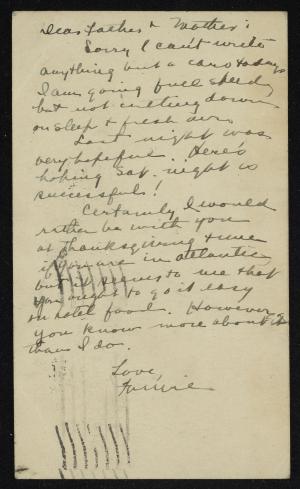 Dear Father & Mother:
Sorry I can't write
anything but a card today.
I am going full speed,
but not cutting down
on sleep & fresh air.
Last night was
very hopeful. Here's
hoping Sat. night is
successful!
Certainly I would
rather be with you
at Thanksgiving time
if you are in Atlantic,
but it seems to me that
you ought to go it easy
on hotel food. However,
you know more about it
than I do.
Love,